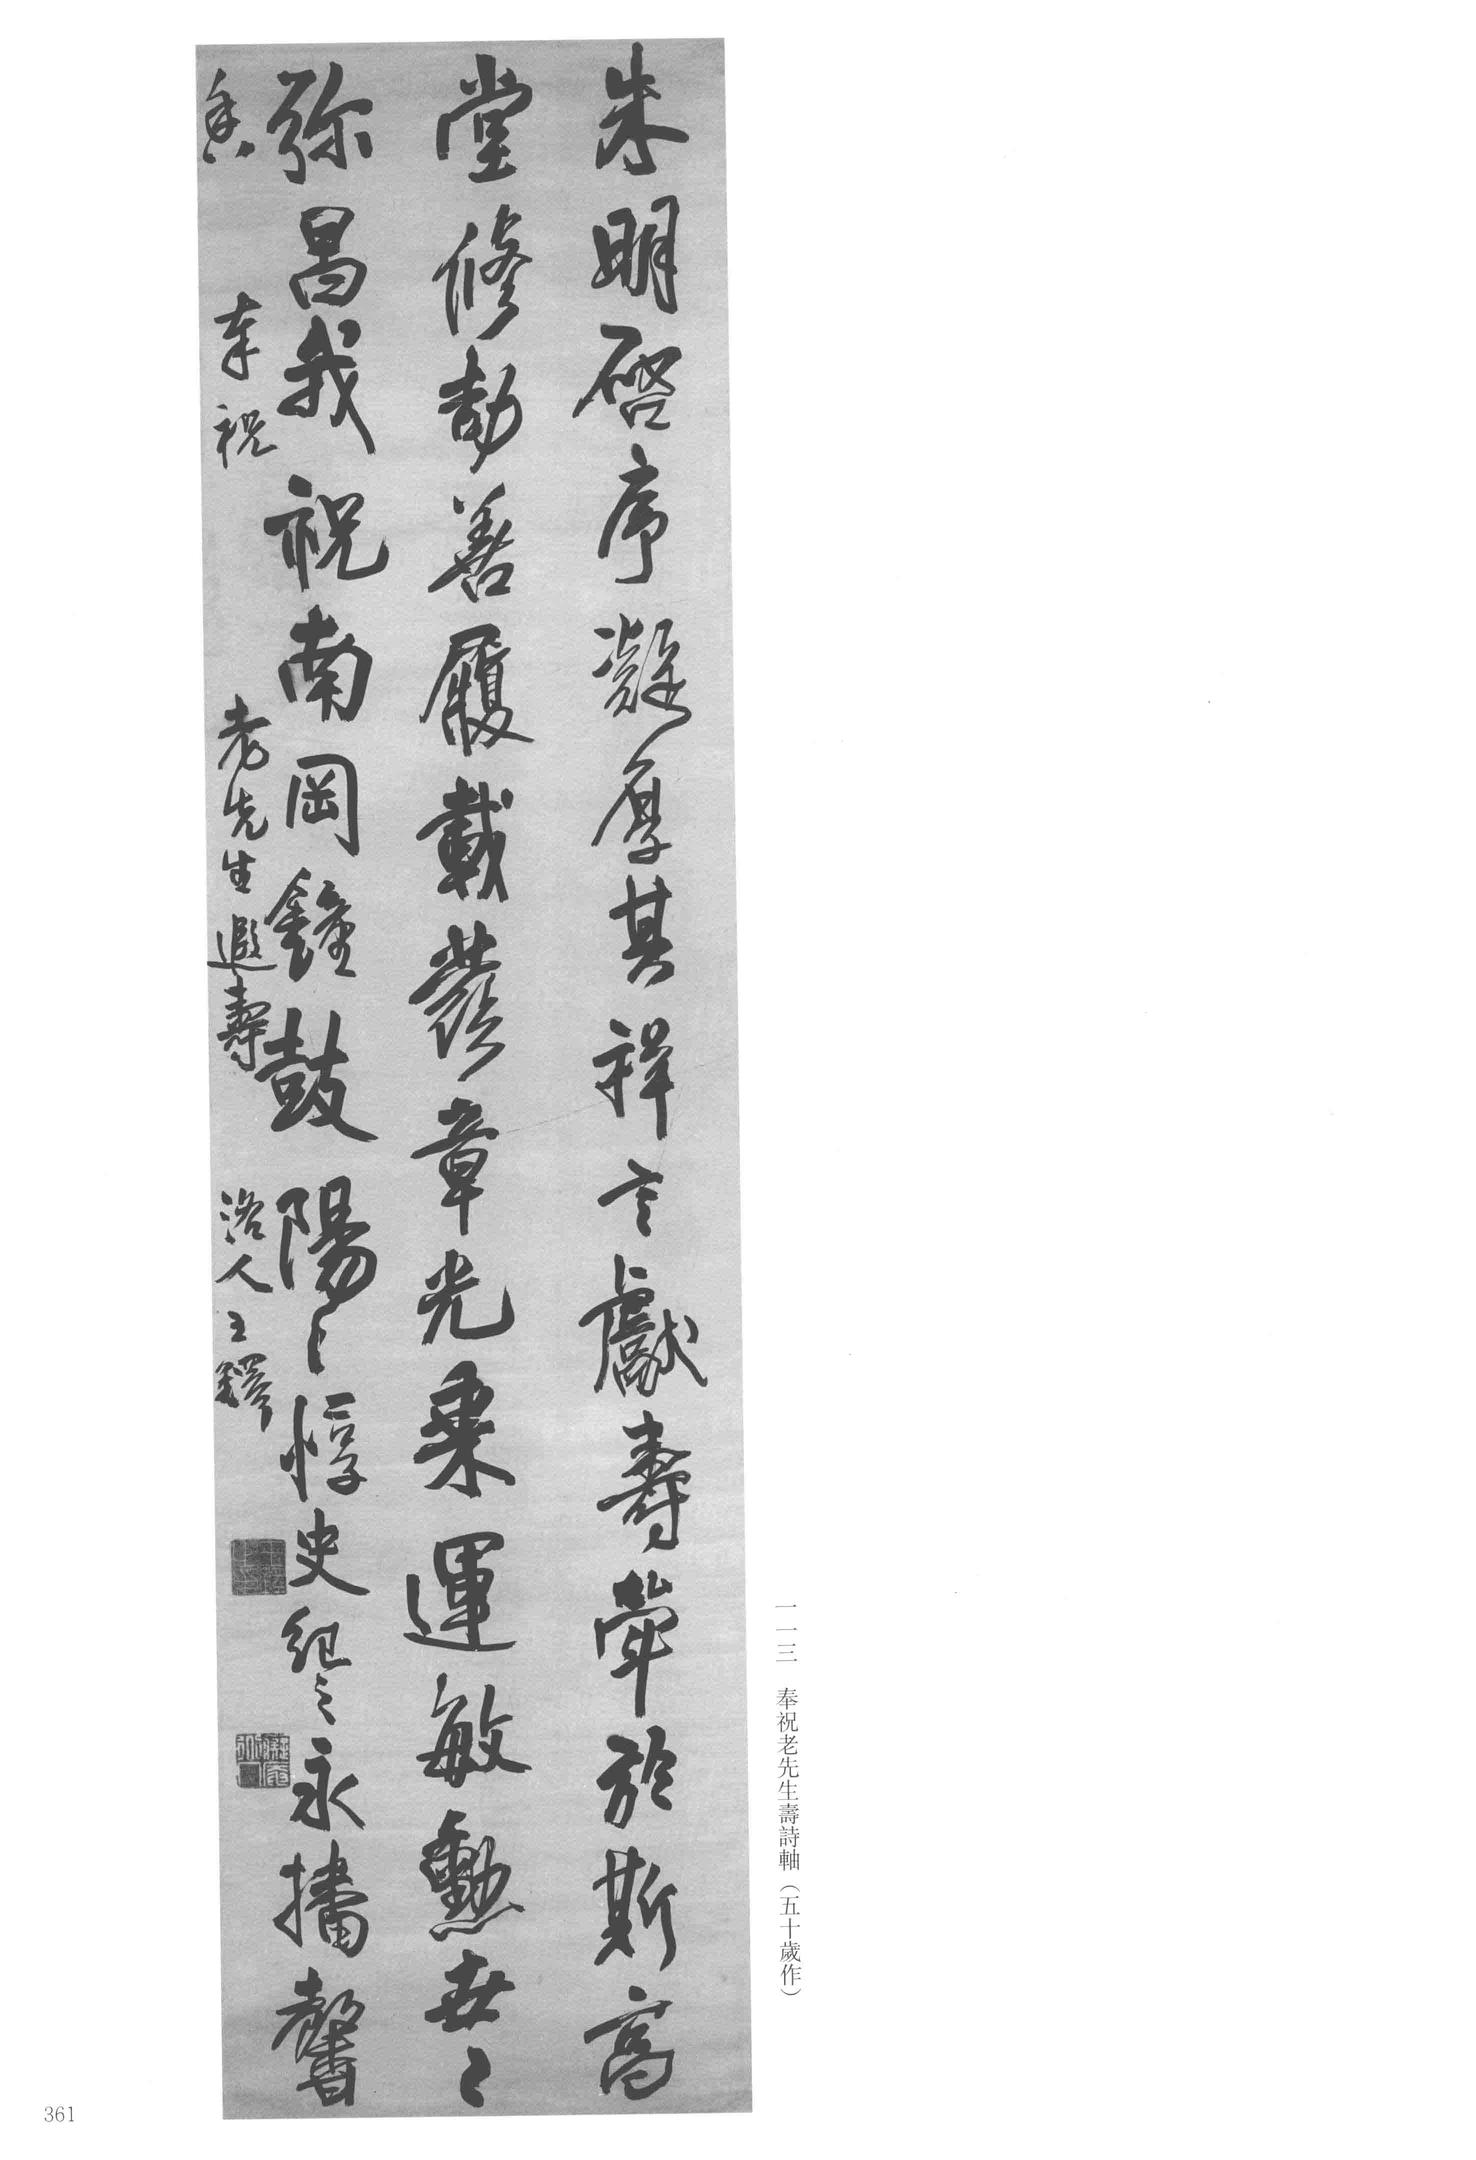 一一三 奉祝老先生壽詩軸（五十歲作）
朱明啓序凝厚其祥言獻壽犖於斯高
堂修劼善履載發章光乗運敏勳世〻
弥昌我祝南岡鐘鼓陽〻惇史紀之永播馨
香
奉祝
老先生遐壽
洛人王鐸
361